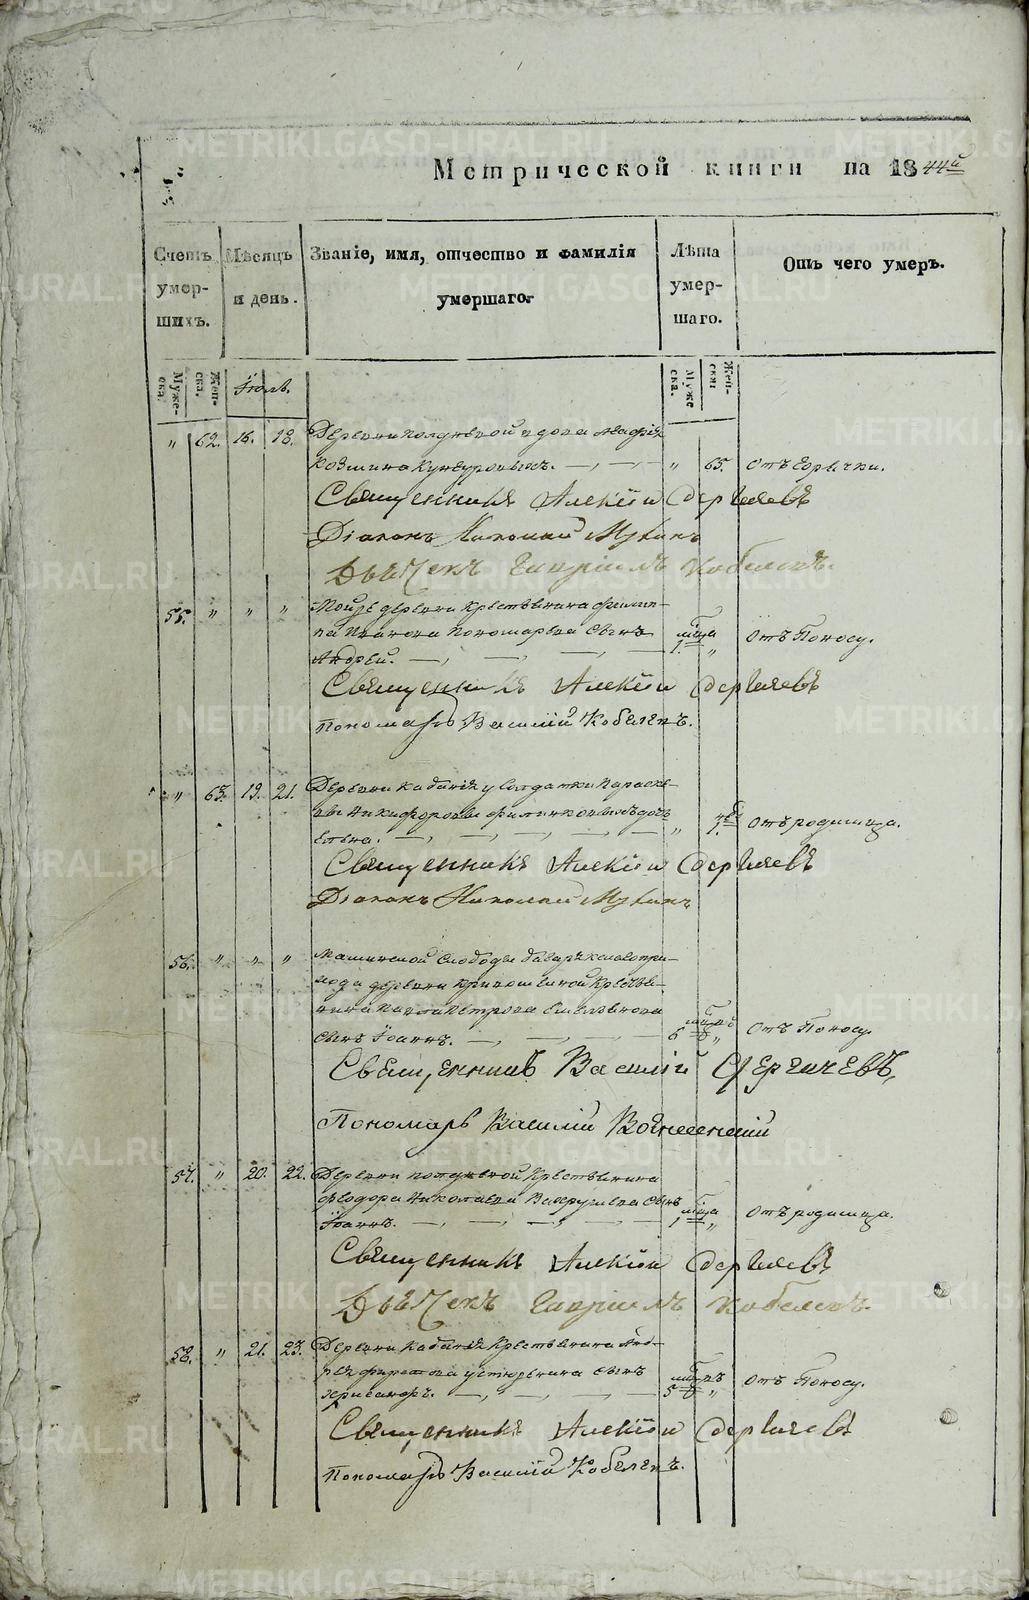 Метрической книги на 1844й
Счетъ умершихъ.
Мѣсяцъ и день.
Званіе, имя, отчество и фамилія умершаго.
Лѣта умершаго.
Отъ чего умеръ.
Мужеска.
Женска.
Іюль.
Мужеска.
Женска.
" 62. 16. 18. Деревни Полдневой вдова Агафія
Козмина Кунгуровыхъ. " 65. отъ горячки.
Священникъ Алексій Сергіевъ
Діаконъ Николай Мухинъ
Дьячекъ Гавріилъ Кобелевъ.
55. " " " Той же деревни крестьянина Филип-
па Иванова Пономарева сынъ
Андрей. 1. " отъ Поносу.
Священникъ Алексій Сергіевъ
Пономарь Василій Кобелевъ.
" 63. 19. 21. Деревни Кабаній у солдатки Параске-
вы Никифоровы дочь
Елена. " отъ родимца.
Священникъ Алексій Сергіевъ
Діаконъ Николай Мухинъ
56. " " " слободы
деревни Кривошеиной крестья-
нина Петрова
сынъ Іоаннъ. 6 " отъ Поносу
Священникъ Василій Сергичевъ,
Пономарь Василій Вознесенскій
57. " 20. 22. Деревни Полдневой крестьянина
Ѳеодора Николаева Вахрушева сынъ
Іоаннъ. 1 " отъ родимца.
Священникъ Алексій Сергіевъ
Дьячекъ Гавріилъ Кобелевъ.
58. " 21. 23. Деревни Кабаній крестьянина Анд-
рея Устюжанина сынъ
5 " отъ Поносу.
Священникъ Алексій Сергіевъ
Пономарь Василій Кобелевъ.
METRIKI.GASO-URAL.RU